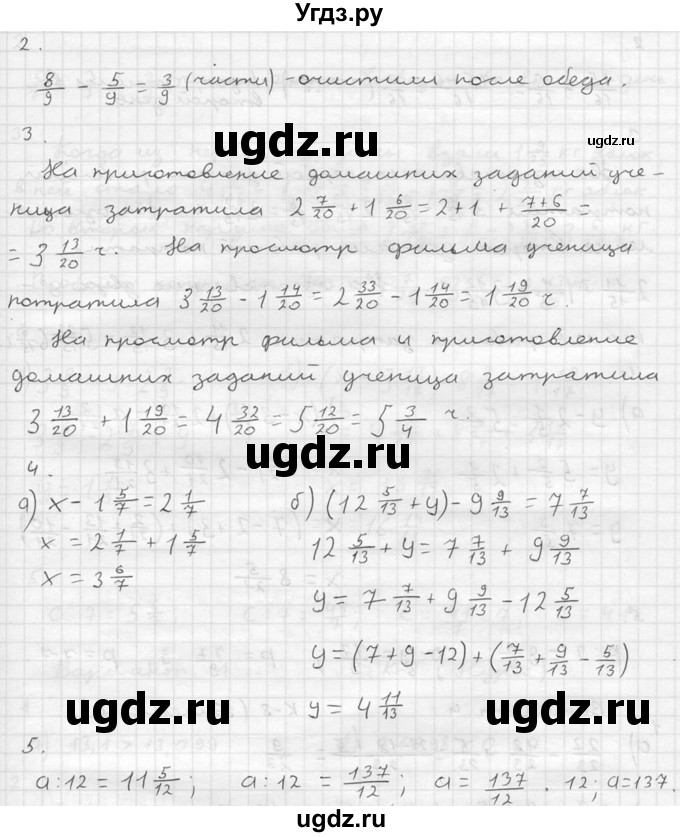 Угдз.ру
2.
8/9 - 5/9 = 3/9 (части) - очистили после обеда.
3.
ugdz.ru ugdz.ru
На приготовление домашних заданий уче-
ница затратила 2 7/20 + 1 6/20 = 2+1 + (7+6)/20 =
= 3 13/20 ч. На просмотр фильма ученица
ugdz.ru
потратила 3 13/20 - 1 14/20 = 2 33/20 - 1 14/20 = 1 19/20 ч.
На просмотр фильма и приготовление
домашних заданий ученица затратила
3 13/20 + 1 19/20 = 4 32/20 = 5 12/20 = 5 3/4 ч.
ugdz.ru ugdz.ru
4.
а) x - 1 5/7 = 2 1/7
x = 2 1/7 + 1 5/7
x = 3 6/7
б) (12 5/13 + y) - 9 9/13 = 7 7/13
12 5/13 + y = 7 7/13 + 9 9/13
y = 7 7/13 + 9 9/13 - 12 5/13
y = (7+9-12) + (7/13 + 9/13 - 5/13)
y = 4 11/13
ugdz.ru ugdz.ru
5.
a:12 = 11 5/12; a:12 = 137/12; a = 137/12 · 12; a=137.
ugdz.ru